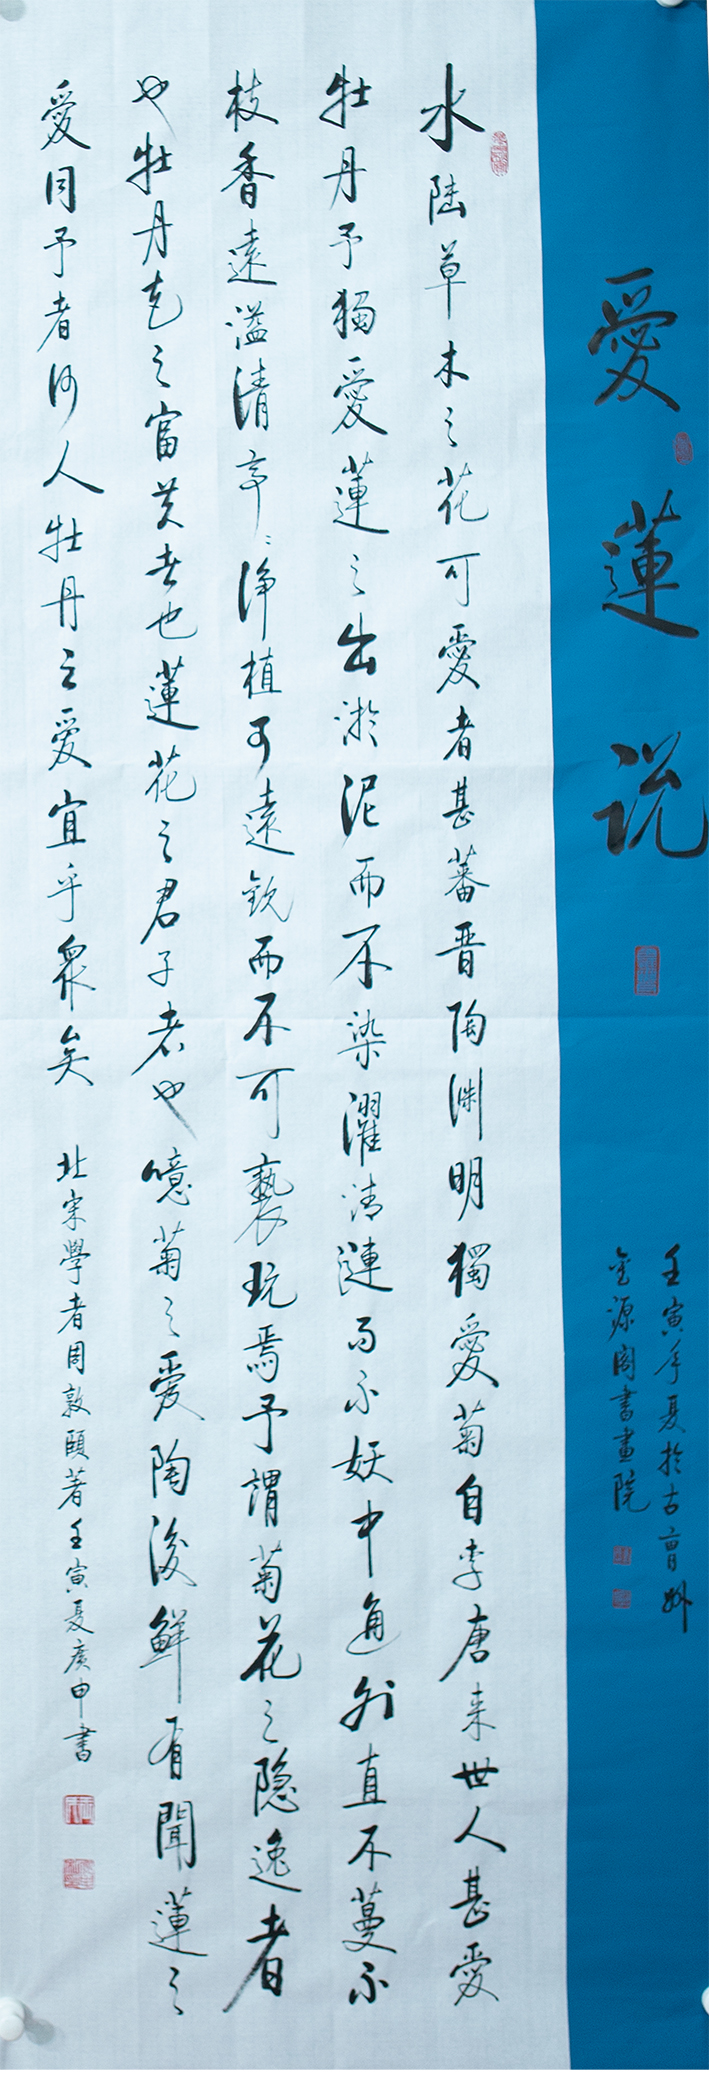 愛蓮说
壬寅年夏於古曹州
金源阁書畫院
水陆草木之花可愛者甚蕃晋陶渊明獨愛菊自李唐来世人甚愛
牡丹予獨愛蓮之出淤泥而不染濯清漣而不妖中通外直不蔓不
枝香遠溢清亭亭淨植可遠觀而不可褻玩焉予謂菊花之隐逸者
也牡丹花之富贵者也蓮花之君子者也噫菊之愛陶後鮮有聞蓮之
愛同予者何人牡丹之愛宜乎眾矣
北宋學者周敦頤著壬寅夏廣申書